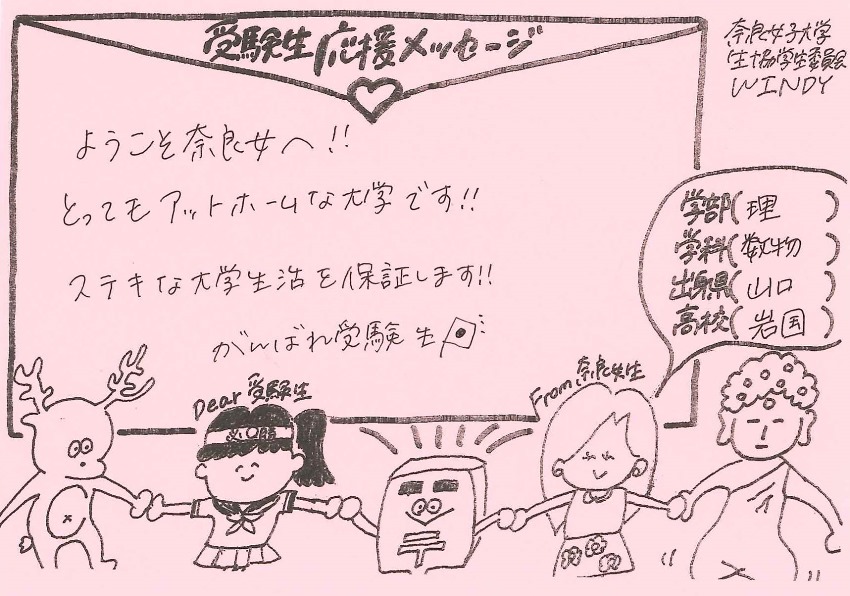 受験生応援メッセージ
奈良女子大学
生協学生委員会
WINDY
ようこそ奈良女へ!!
とってもアットホームな大学です!!
ステキな大学生活を保証します!!
がんばれ受験生
学部(理)
学科(数物)
出身県(山口)
高校(岩国)
Dear 受験生
From 奈良女生
必勝
〒